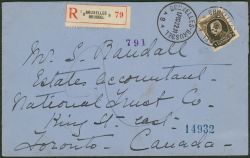 R BRUXELLES 8 BRUSSEL 79
BRUXELLES-BRUSSEL
791
Mr. S. Randall
Estates Accountant
National Trust Co
King St. east
14932
Toronto - Canada -